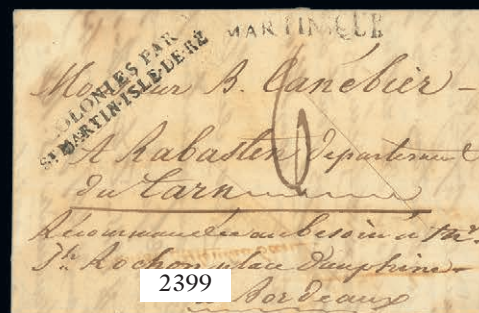 MARTINIQUE
COLONIES PAR
ST MARTIN-ISLE-DE-RÉ
Monsieur B. Canébier
A Rabasten Departement
du Tarn
6
Recommandée au besoin à Mr.
Jh. Rochon place Dauphine
à Bordeaux
2399